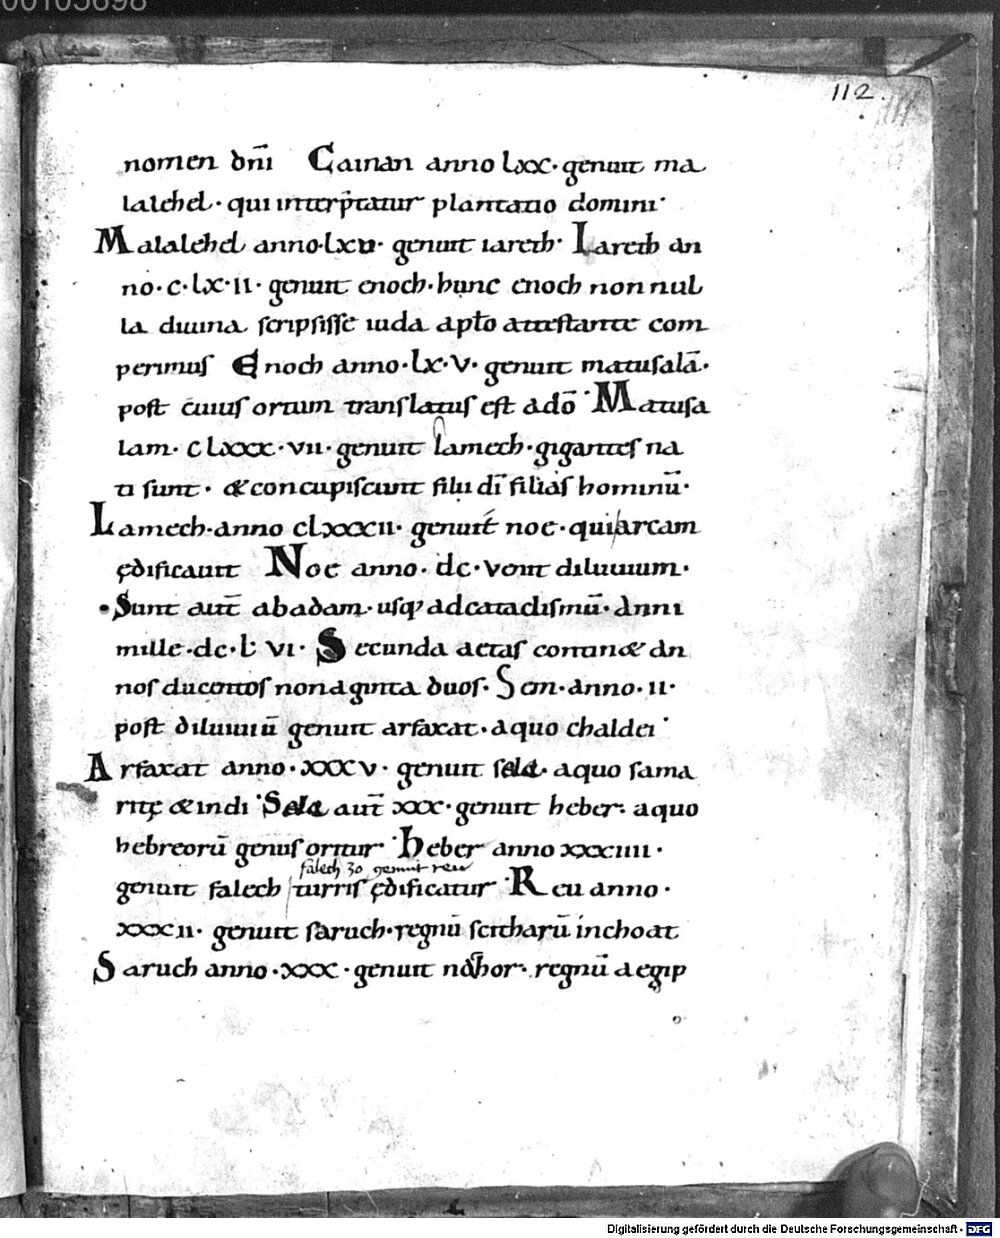 00105698
112.
nomen dn̄i Cainan anno lxx· genuit ma
lalehel· qui interp̄tatur plantatio domini·
Malalehel anno·lxv· genuit iareth· Iareth an
no·c·lx·II· genuit enoch·hunc enoch non nul
la diuina scripsisse iuda apłto attestante com
perimus Enoch anno·lx·V· genuit matusalā·
post cuius ortum translatus est adō· Matusa
lam· clxxx·vii· genuit lamech·gigantes na
ti sunt· &concupiscunt filii dī filias hominū·
Lamech·anno clxxxii· genuit noe·qui arcam
ędificauit Noe anno· dc· venit diluuium·
Sunt aut̄ abadam·usq; adcataclismū· Anni
mille·dc·L· VI· Secunda aetas contin& an
nos ducentos nonaginta duos· Sem·anno·II·
post diluuiū genuit arfaxat·aquo chaldei·
Arfaxat anno·xxxv· genuit sela· aquo sama
ritę &indi· Sela aut̄ xxx·genuit heber· aquo
hebreorū genus oritur· Heber anno xxxiiii·
falech 30 genuit reu
genuit falech turris ędificatur· Reu anno·
xxxii· genuit saruch·regnū scitharū inchoat
Saruch anno·xxx·genuit nahor· regnū aegip
Digitalisierung gefördert durch die Deutsche Forschungsgemeinschaft - DFG